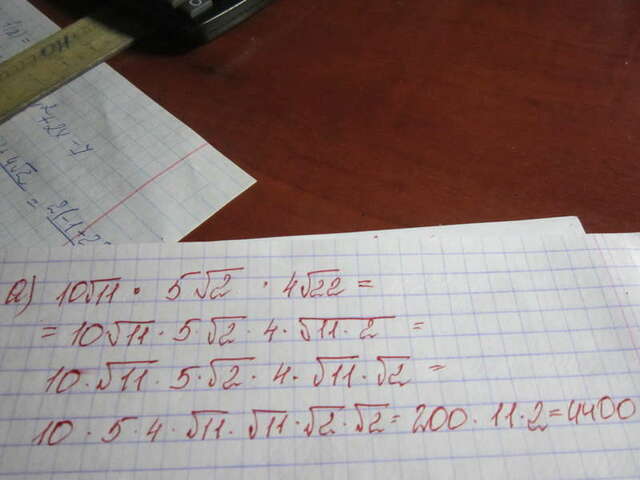 x² + 2x - y
+ 4√2
= 2(-1)+2
а) 10√11 · 5√2 · 4√22 =
= 10√11 · 5·√2 · 4 · √11·2 =
10·√11 · 5·√2 · 4 · √11·√2 =
10 · 5 · 4 · √11 · √11 · √2 · √2 = 200 · 11 · 2 = 4400